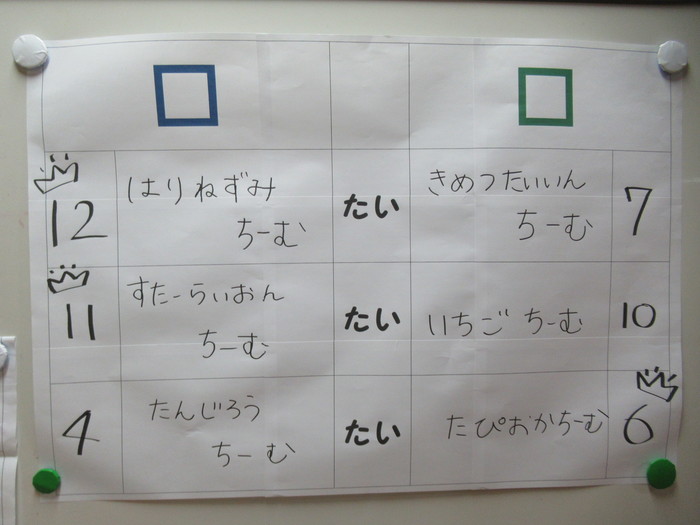 はりねずみ
ちーむ
12
たい
きめつたいいん
ちーむ
7
すたーらいおん
ちーむ
11
たい
いちご ちーむ
10
たんじろう
ちーむ
4
たい
たぴおかちーむ
6